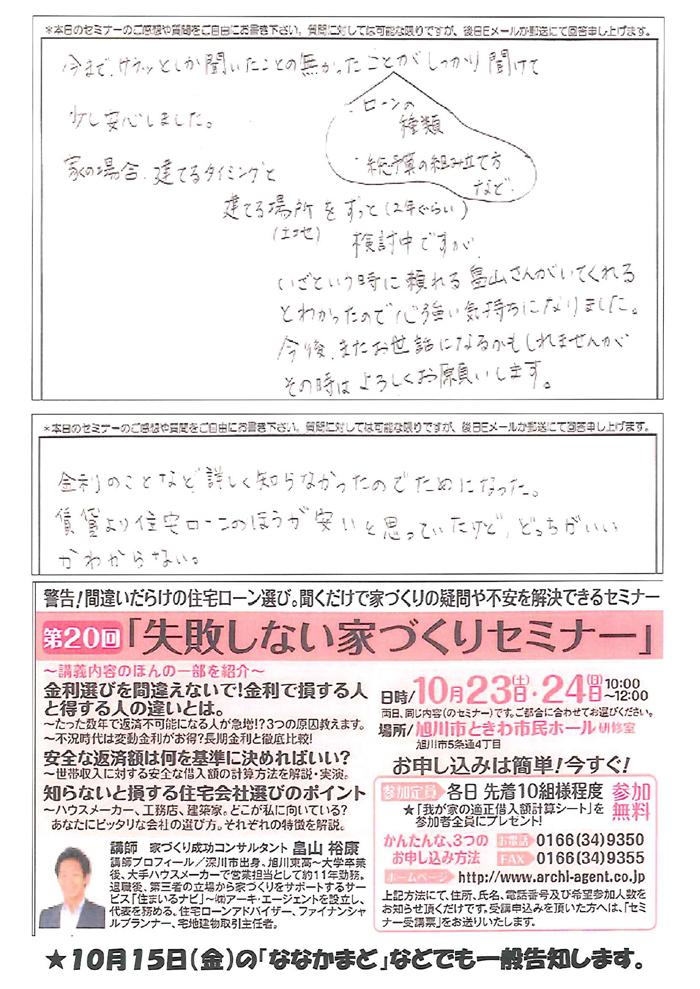 *本日のセミナーのご感想や質問をご自由にお書き下さい。質問に対しては可能な限りですが、後日Eメールか郵送にて回答申し上げます。
今まで、サラッとしか聞いたことの無かったことがしっかり聞けて
・ローンの
種類
・総予算の組み立て方
など
少し安心しました。
家の場合、建てるタイミングと
建てる場所をずっと(2年ぐらい)
(土地)
検討中ですが、
いざという時に頼れる畠山さんがいてくれる
とわかったので心強い気持ちになりました。
今後、またお世話になるかもしれませんが
その時はよろしくお願いします。
*本日のセミナーのご感想や質問をご自由にお書き下さい。質問に対しては可能な限りですが、後日Eメールか郵送にて回答申し上げます。
金利のことなど詳しく知らなかったのでためになった。
賃貸より住宅ローンのほうが安いと思っていたけど、どっちがいい
かわからない。
警告!間違いだらけの住宅ローン選び。聞くだけで家づくりの疑問や不安を解決できるセミナー
第20回「失敗しない家づくりセミナー」
～講義内容のほんの一部を紹介～
金利選びを間違えないで!金利で損する人
と得する人の違いとは。
～たった数年で返済不可能になる人が急増!?3つの原因教えます。
～不況時代は変動金利がお得?長期金利と徹底比較!
安全な返済額は何を基準に決めればいい?
～世帯収入に対する安全な借入額の計算方法を解説・実演。
知らないと損する住宅会社選びのポイント
～ハウスメーカー、工務店、建築家。どこが私に向いている?
あなたにピッタリな会社の選び方。それぞれの特徴を解説。
講師 家づくり成功コンサルタント 畠山 裕康
講師プロフィール/深川市出身、旭川東高～大学卒業
後、大手ハウスメーカーで営業担当として約11年勤務。
退職後、第三者の立場から家づくりをサポートするサー
ビス「住まいるナビ」～㈱アーキ・エージェントを設立し、
代表を務める。住宅ローンアドバイザー、ファイナンシャ
ルプランナー、宅地建物取引主任者。
日時/10月23日(土)・24日(日)10:00～12:00
両日、同じ内容(のセミナー)です。ご都合に合わせてお選びください。
場所/旭川市ときわ市民ホール研修室
旭川市5条通4丁目
お申し込みは簡単!今すぐ!
参加定員 各日 先着10組様程度
★「我が家の適正借入額計算シート」を
参加者全員にプレゼント!
参加無料
かんたんな、3つの
お申し込み方法
お電話 0166(34)9350
FAX 0166(34)9355
ホームページ http://www.archi-agent.co.jp
上記方法にて、住所、氏名、電話番号及び希望参加人数を
お知らせ頂くだけです。受講申込みを頂いた方へは、「セミ
ナー受講票」をお送りいたします。
★10月15日(金)の「ななかまど」などでも一般告知します。